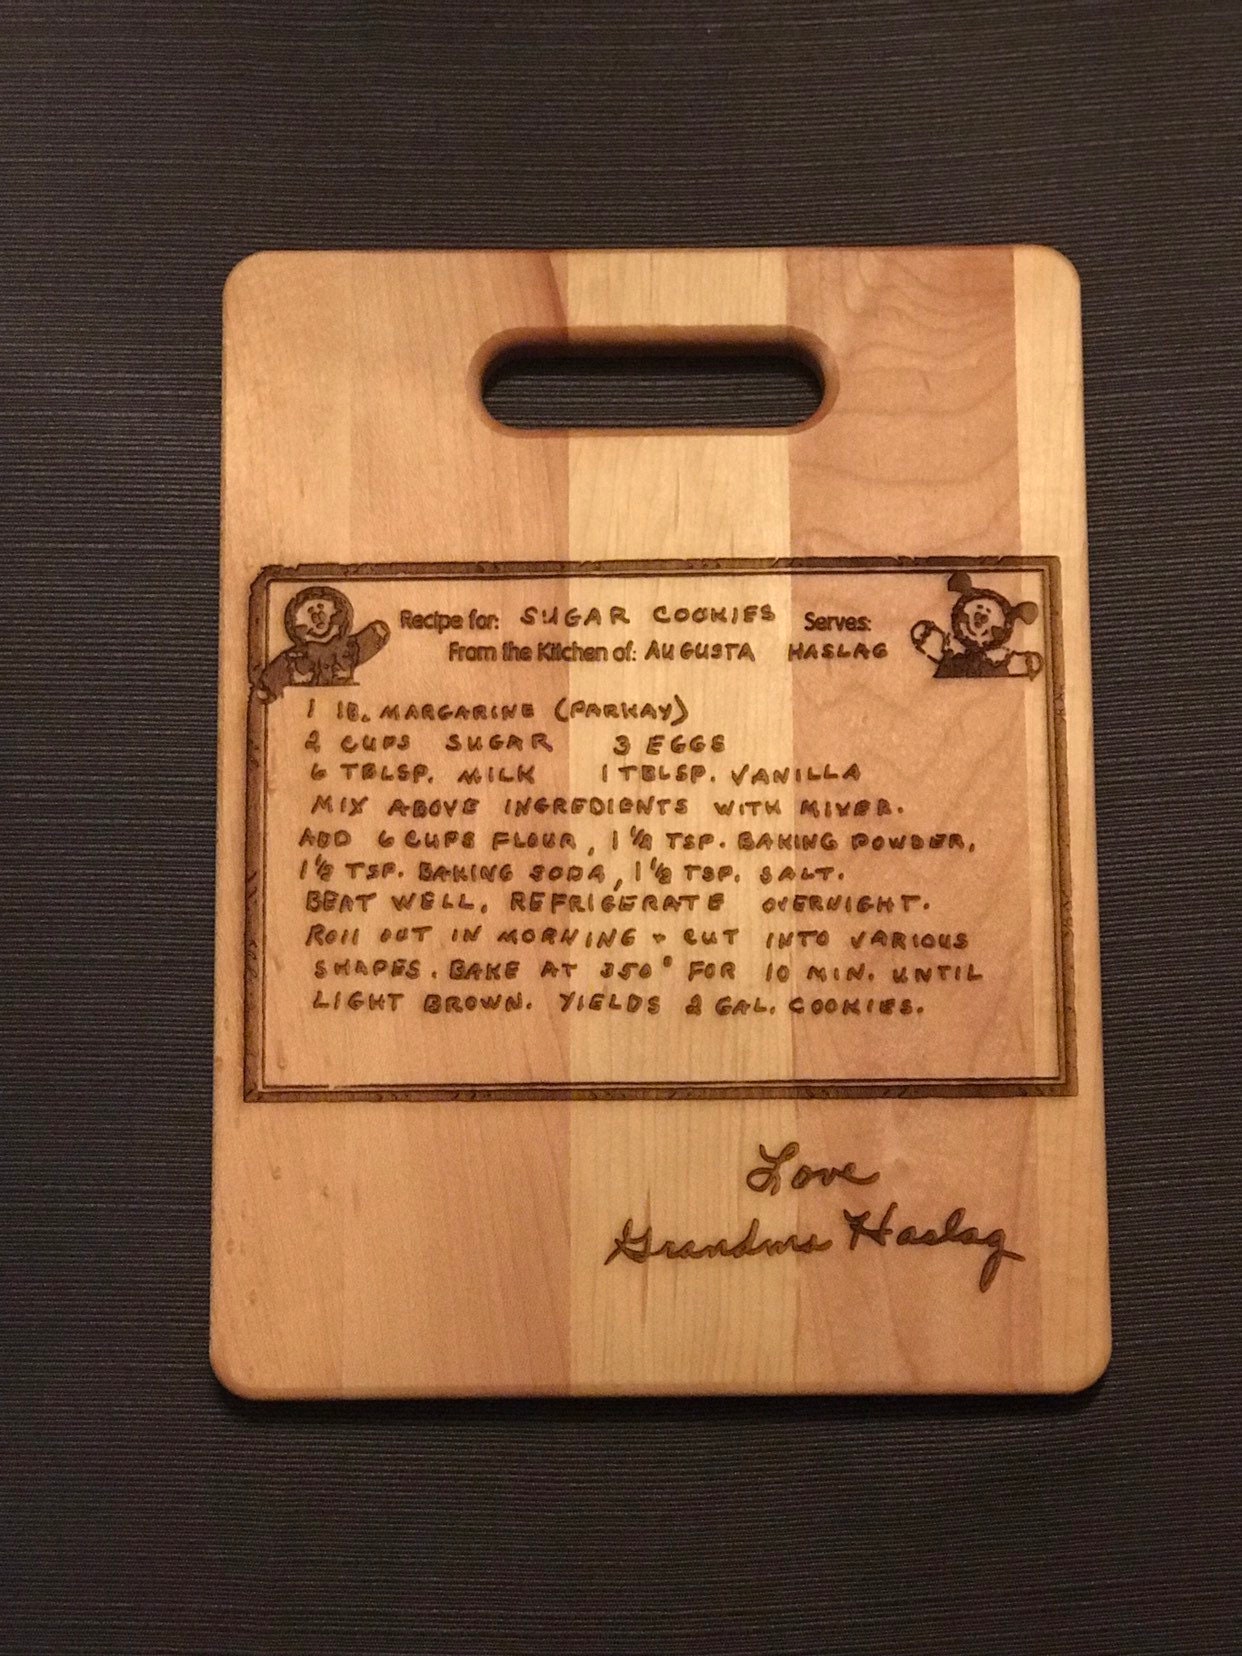 Recipe for: SUGAR COOKIES Serves:
From the Kitchen of: AUGUSTA HASLAG
1 LB. MARGARINE (PARKAY)
2 CUPS SUGAR 3 EGGS
6 TBLSP. MILK 1 TBLSP. VANILLA
MIX ABOVE INGREDIENTS WITH MIXER.
ADD 6 CUPS FLOUR, 1 1/2 TSP. BAKING POWDER,
1 1/2 TSP. BAKING SODA, 1 1/2 TSP. SALT.
BEAT WELL. REFRIGERATE OVERNIGHT.
ROll OUT IN MORNING + CUT INTO VARIOUS
SHAPES. BAKE AT 350° FOR 10 MIN. UNTIL
LIGHT BROWN. YIELDS 2 GAL. COOKIES.
Love
Grandma Haslag